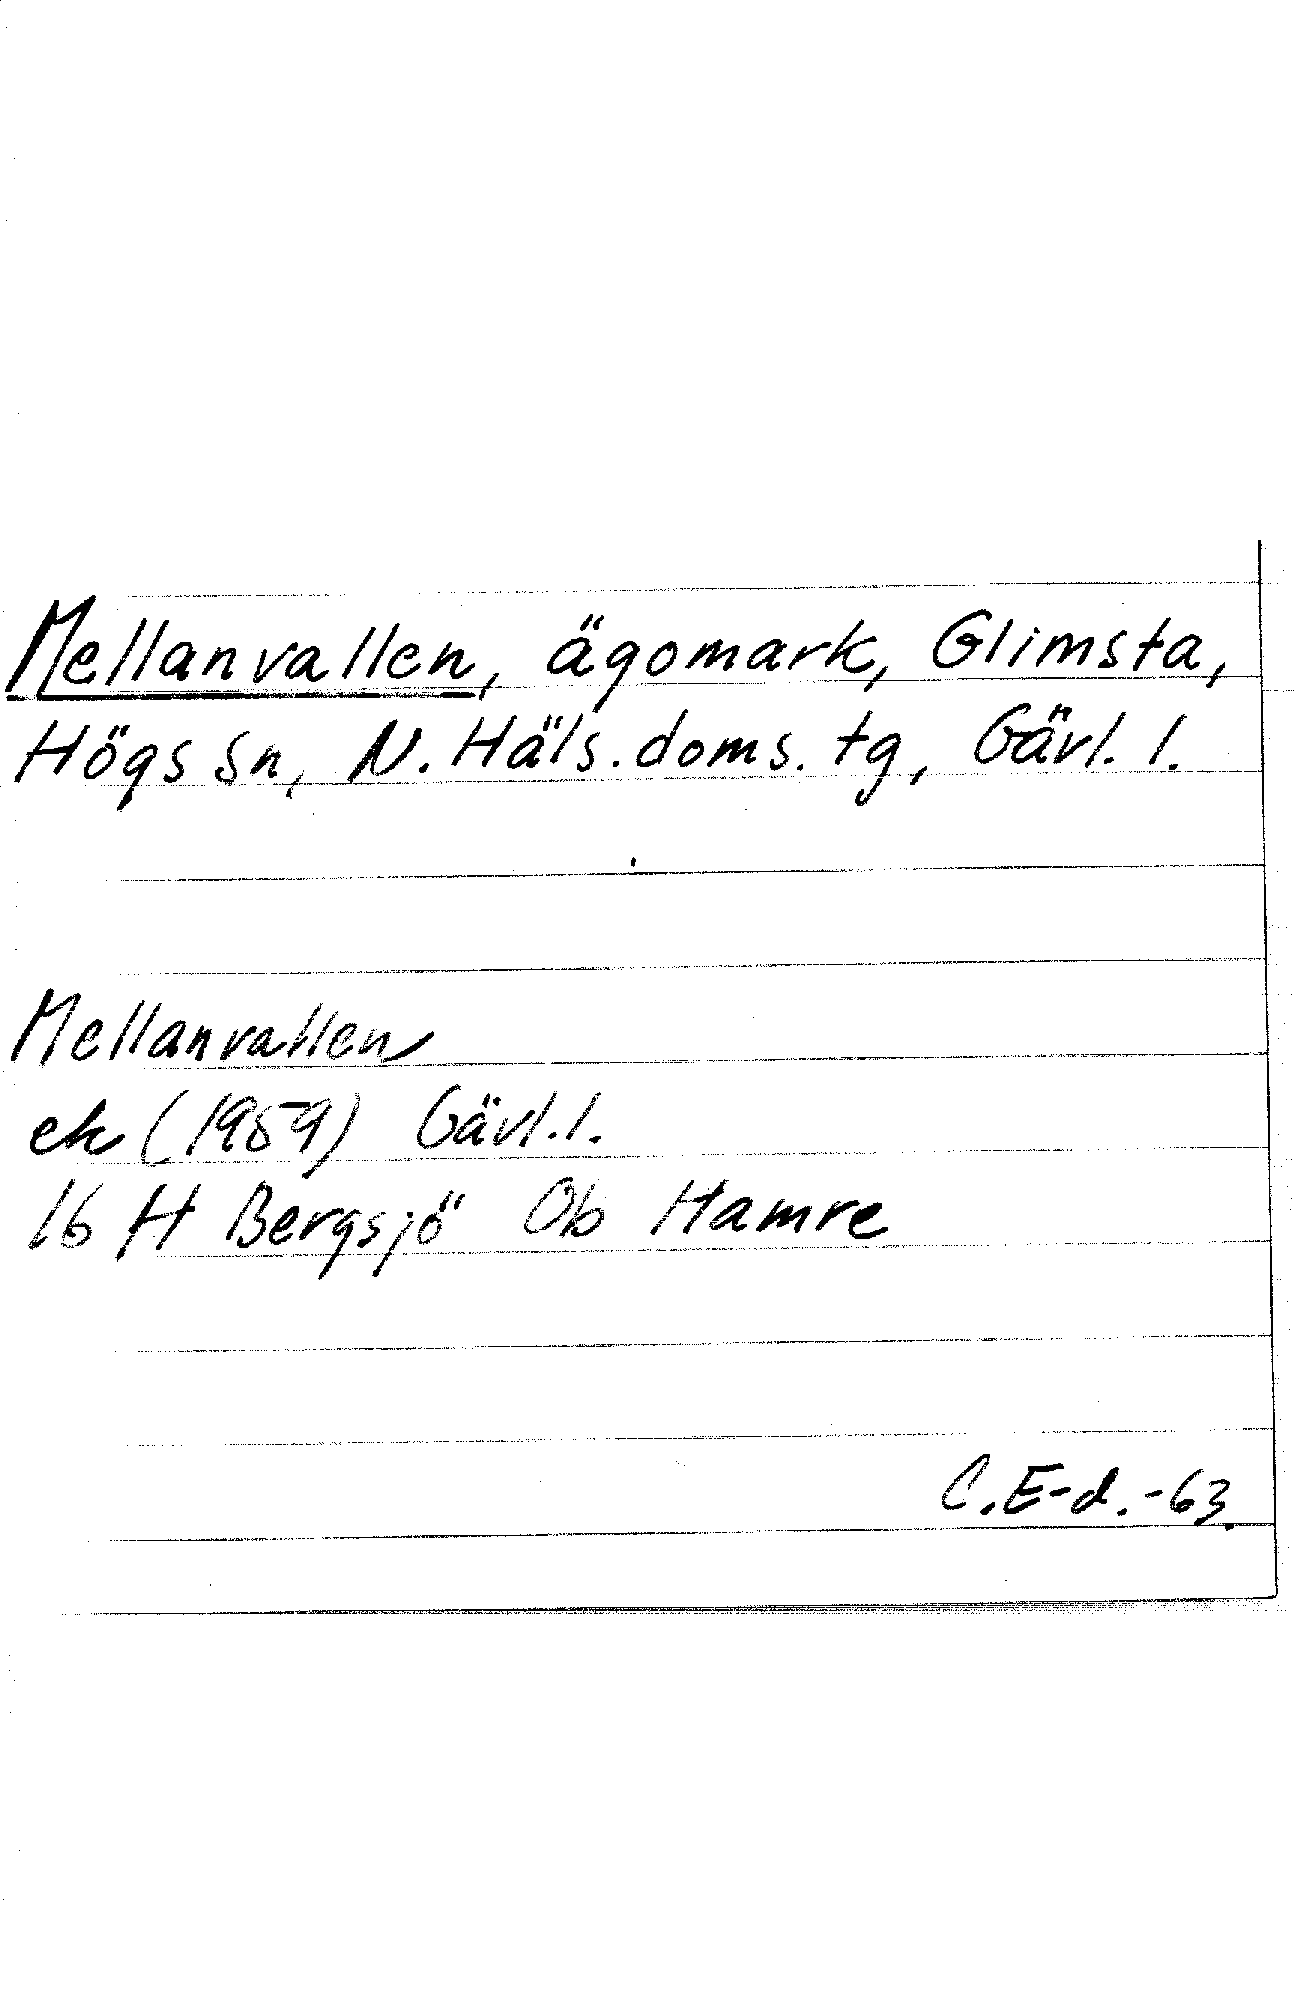 Mellanvallen, ägomark, Glimsta,
Högs sn, N. Häls. doms. tg, Gävl. l.
Mellanvallen
ek (1959) Gävl. l.
16 H Bergsjö Ob Hamre
C. E-d. -63.